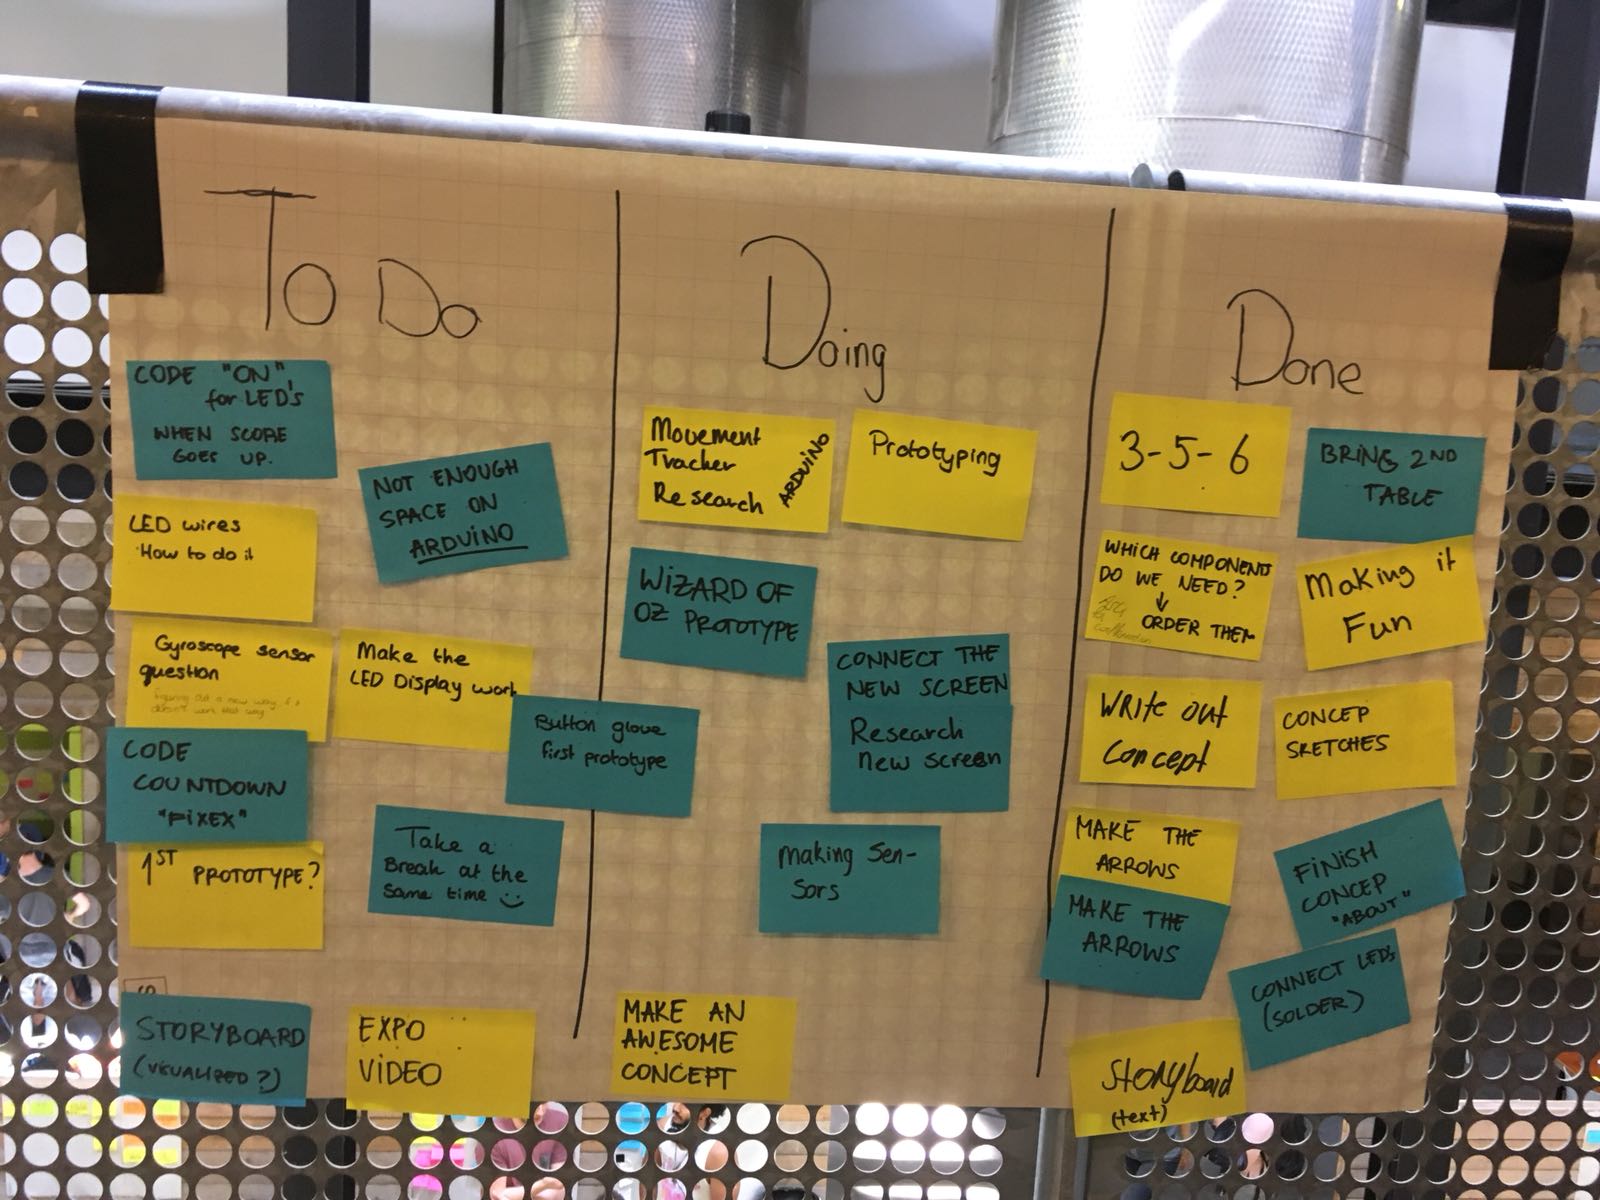 To Do
CODE "ON"
for LED's
WHEN SCORE
GOES UP.
NOT ENOUGH
SPACE ON
ARDUINO
LED wires
How to do it
Gyroscope sensor
question
Figuring out a new way, if it
doesn't work that way
Make the
LED Display work
CODE
COUNTDOWN
"PiXEX"
Button glove
first prototype
1ST PROTOTYPE?
Take a
Break at the
Same time
STORYBOARD
(VISUALIZED?)
EXPO
VIDEO
Doing
Movement
Tracker
Research
ARDUINO
Prototyping
WIZARD OF
OZ PROTOTYPE
CONNECT THE
NEW SCREEN
Research
new screen
Making Sen-
sors
MAKE AN
AWESOME
CONCEPT
Done
3-5-6
BRING 2ND
TABLE
WHICH COMPONENTS
DO WE NEED?
ORDER THEM
Making it
Fun
Write out
Concept
CONCEP
SKETCHES
MAKE THE
ARROWS
MAKE THE
ARROWS
FINISH
CONCEP
"ABOUT"
CONNECT LED's
(SOLDER)
Storyboard
(text)